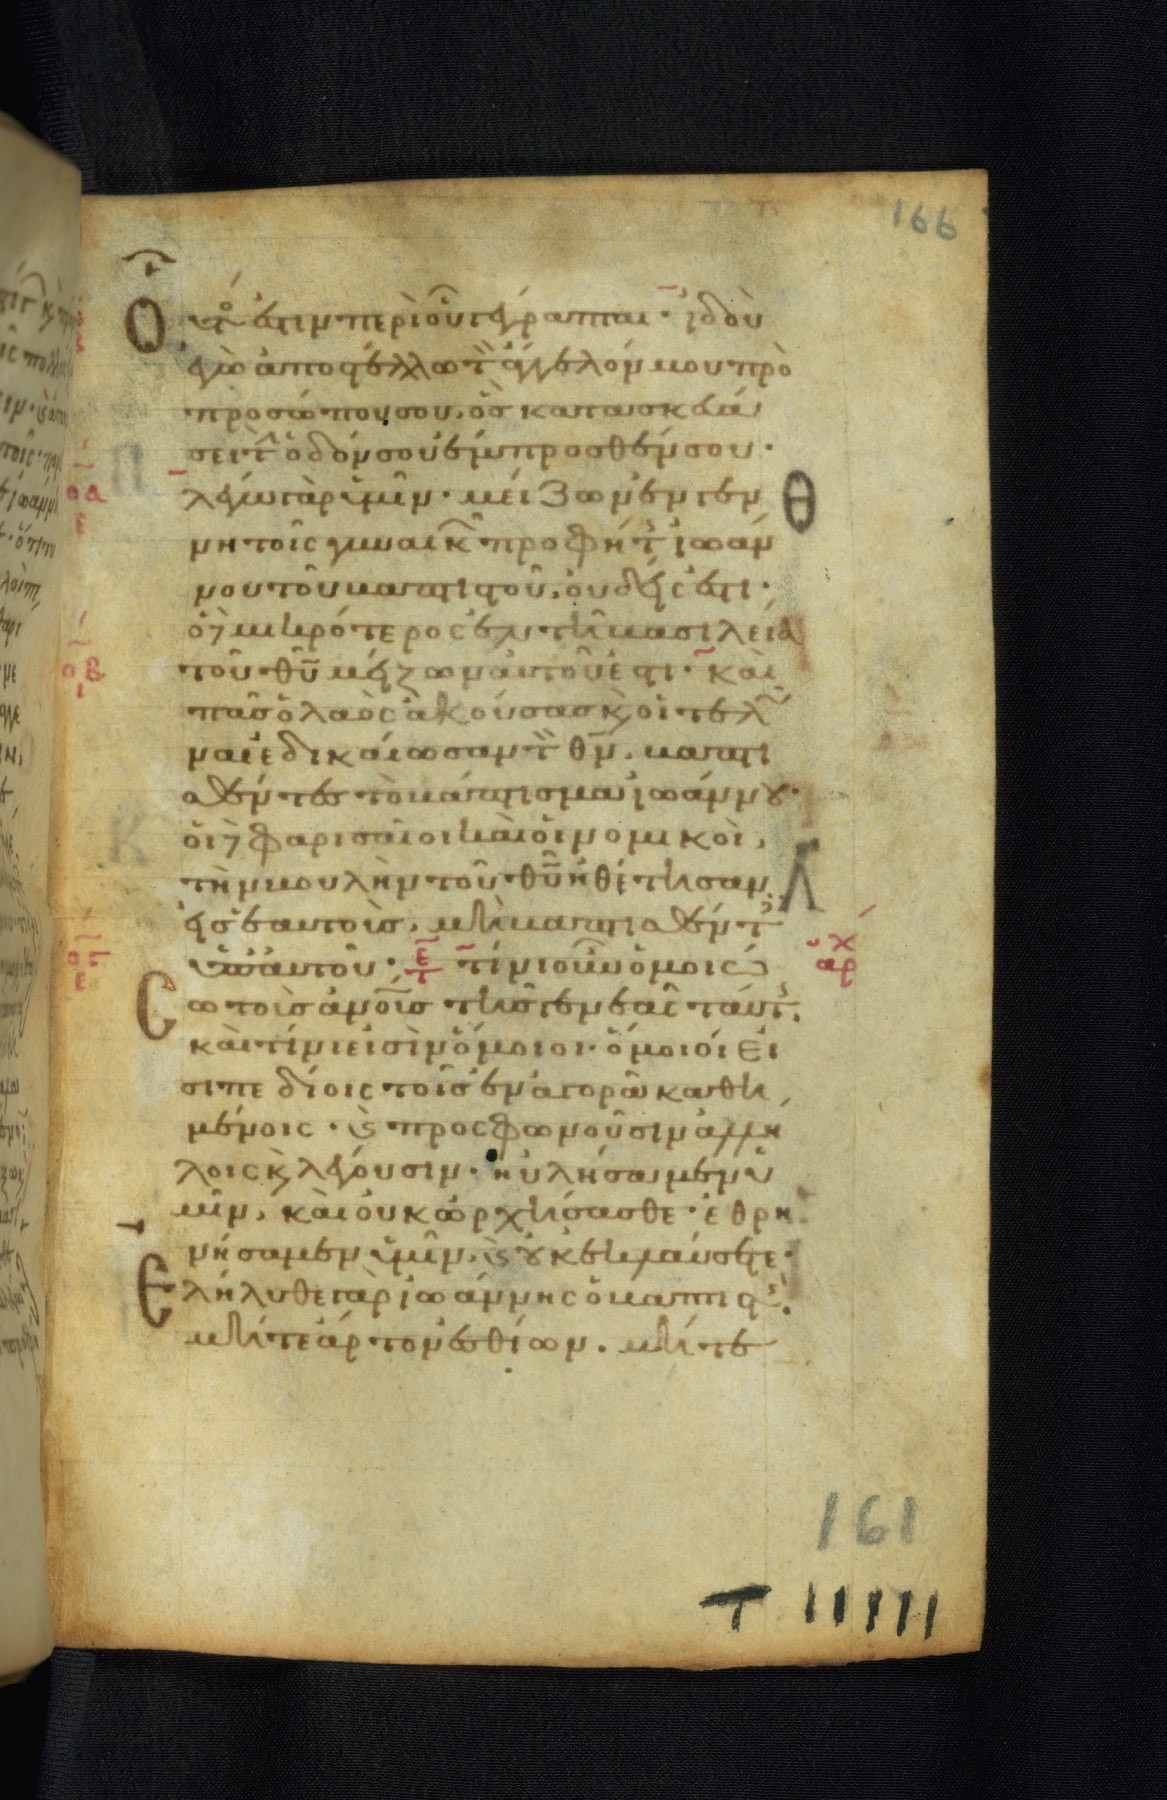 166
Οὗτός ἐστιν περὶ οὗ γέγραπται· ἰδοὺ
ἐγὼ ἀποστέλλω τὸν ἄγγελόν μου πρὸ
προσώπου σου, ὃς κατασκευά
σει τὴν ὁδόν σου ἔμπροσθέν σου·
λέγω γὰρ ὑμῖν· μείζων ἐν γεν
νητοῖς γυναικῶν προφήτης ἰωάν
νου τοῦ βαπτιστοῦ, οὐδείς ἐστι·
ὁ δὲ μικρότερος ἐν τῆ βασιλεία
τοῦ θῦ μείζων αὐτοῦ ἐστι· καὶ
πᾶς ὁ λαὸς ἀκούσας κ οἱ τελῶ
ναι ἐδικαίωσαν τὸν θν, βαπτι
σθέντες τὸ βάπτισμα ἰωάννου·
οἱ δὲ φαρισαῖοι καὶ οἱ νομικοὶ,
τὴν βουλὴν τοῦ θῦ ἠθέτησαν
εἰς ἑαυτοὺς, μὴ βαπτισθέντες
ὑπ' αὐτοῦ· τίνι οὖν ὁμοιώ
σω τοὺς ἀνους τῆς γενεᾶς ταύτης,
καὶ τίνι εἰσὶν ὅμοιοι· ὅμοιοί εἰ
σι πεδίοις τοῖς ἐν ἀγορᾶ καθη
μένοις· κ προσφωνοῦσιν ἀλλή
λοις κ λέγουσιν· ηὐλήσαμεν ὑ
μῖν, καὶ οὐκ ὠρχήσασθε· ἐθρη
νήσαμεν ὑμῖν, κ οὐκ ἐκλαύσατε·
ἐλήλυθε γὰρ ἰωάννης ὁ βαπτιστὴς,
μήτε ἄρτον ἐσθίων. μήτε
οα
ε
οβ
ι
ογ
ε
ἀρχ
161